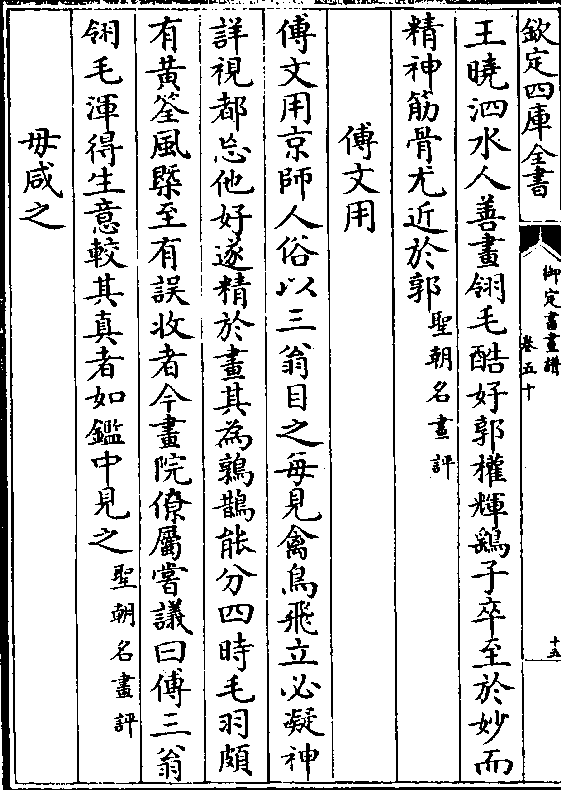 欽定四庫全書
御定書畫譜
卷五十
十五
王曉泗水人善畫翎毛酷好郭權輝鷂子卒至於妙而
精神筋骨尤近於郭聖朝名畫評
傅文用
傅文用京師人俗以三翁目之每見禽鳥飛立必凝神
詳視都忘他好遂精於畫其為鶉鵲能分四時毛羽頗
有黃筌風槩至有誤收者今畫院僚屬嘗議曰傅三翁
翎毛渾得生意較其真者如鑑中見之聖朝名畫評
毋咸之